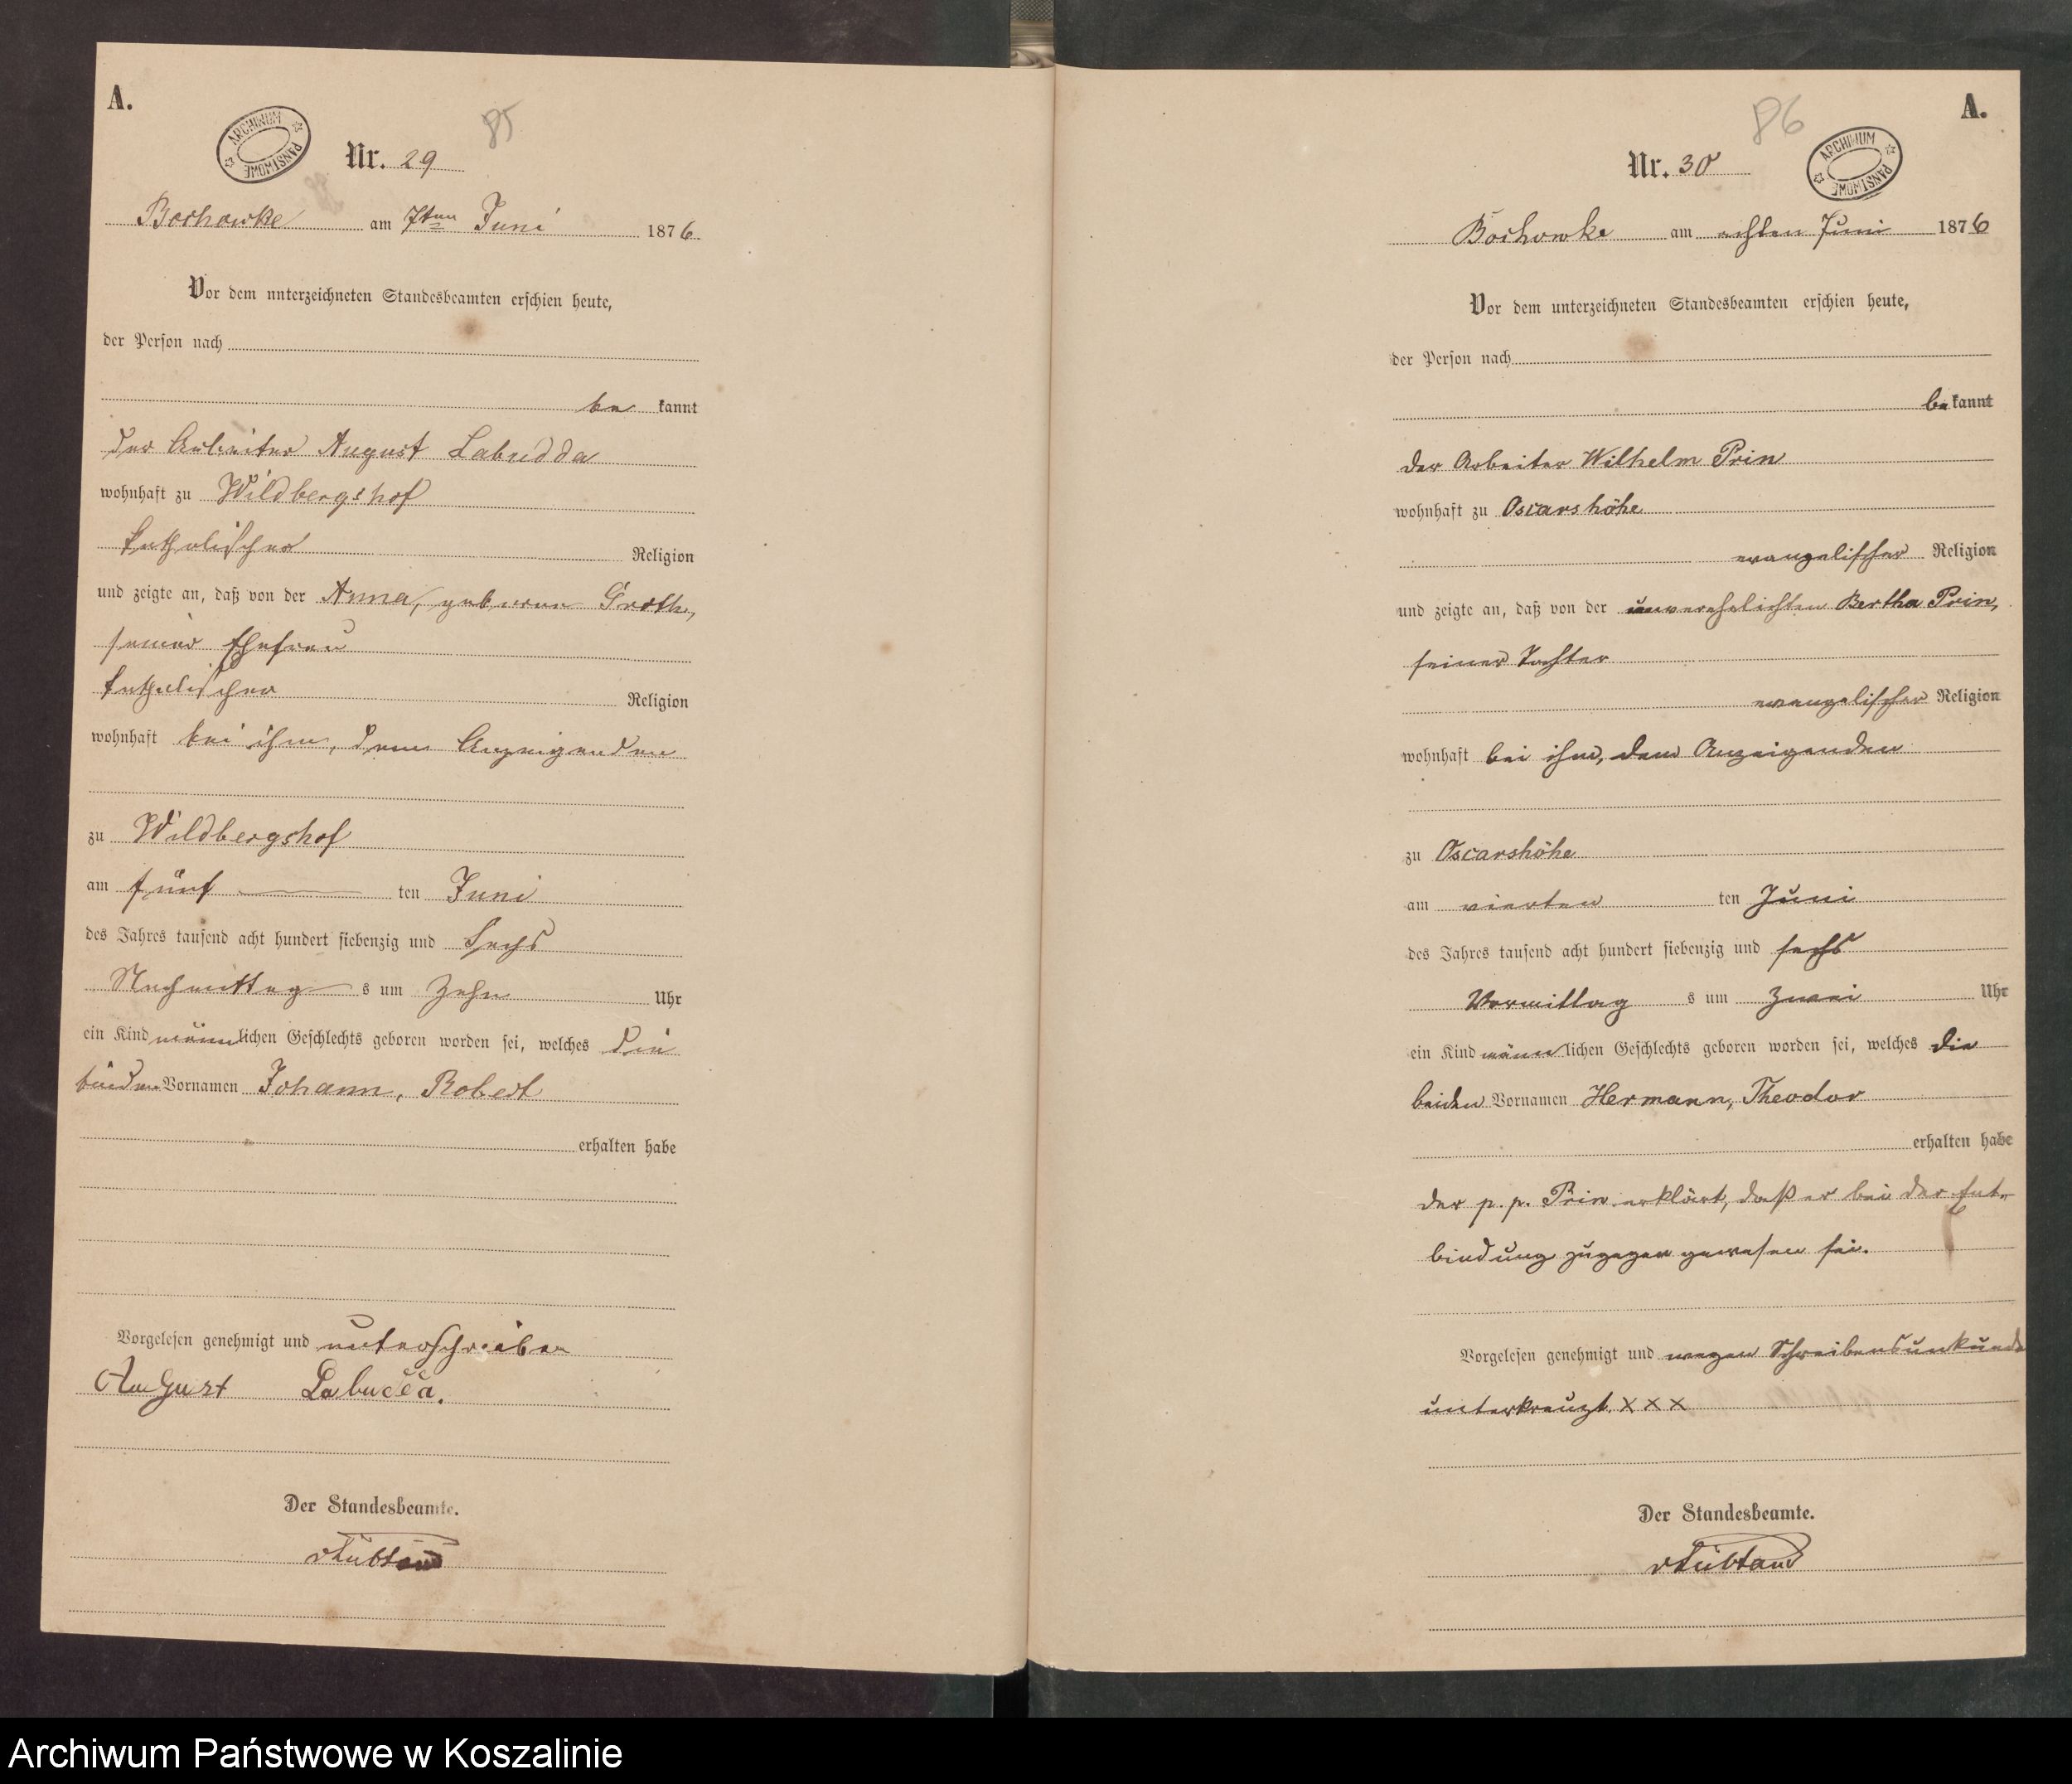 A.
ARCHIWUM PAŃSTWOWE
85
Nr. 29
Bochowke am 7ten Juni 1876
Vor dem unterzeichneten Standesbeamten erschien heute,
der Person nach
be kannt
der Arbeiter August Labudda
wohnhaft zu Wildbergshof
katholischer Religion
und zeigte an, daß von der Anna, geborene Groth,
seiner Ehefrau
katholischer Religion
wohnhaft bei ihm, dem Anzeigenden
zu Wildbergshof
am fünf ten Juni
des Jahres tausend acht hundert siebenzig und sechs
Nachmittag s um zehn Uhr
ein Kind männlichen Geschlechts geboren worden sei, welches die
beiden Vornamen Johann, Robert
erhalten habe
Vorgelesen genehmigt und unterschrieben
August Labudda.
Der Standesbeamte.
A.
86
ARCHIWUM PAŃSTWOWE
Nr. 30
Bochowke am achten Juni 1876
Vor dem unterzeichneten Standesbeamten erschien heute,
der Person nach
bekannt
der Arbeiter Wilhelm Prin
wohnhaft zu Oscarshöhe
evangelischer Religion
und zeigte an, daß von der unverehelichten Bertha Prin,
seiner Tochter
evangelischer Religion
wohnhaft bei ihm, dem Anzeigenden
zu Oscarshöhe
am vierten ten Juni
des Jahres tausend acht hundert siebenzig und sechs
Vormittag s um zwei Uhr
ein Kind männlichen Geschlechts geboren worden sei, welches die
beiden Vornamen Hermann, Theodor
erhalten habe
der p. p. Prin erklärt, daß er bei der Ent-
bindung zugegen gewesen sei.
Vorgelesen genehmigt und wegen Schreibensunkunde
unterkreuzt. X X X
Der Standesbeamte.
Archiwum Państwowe w Koszalinie